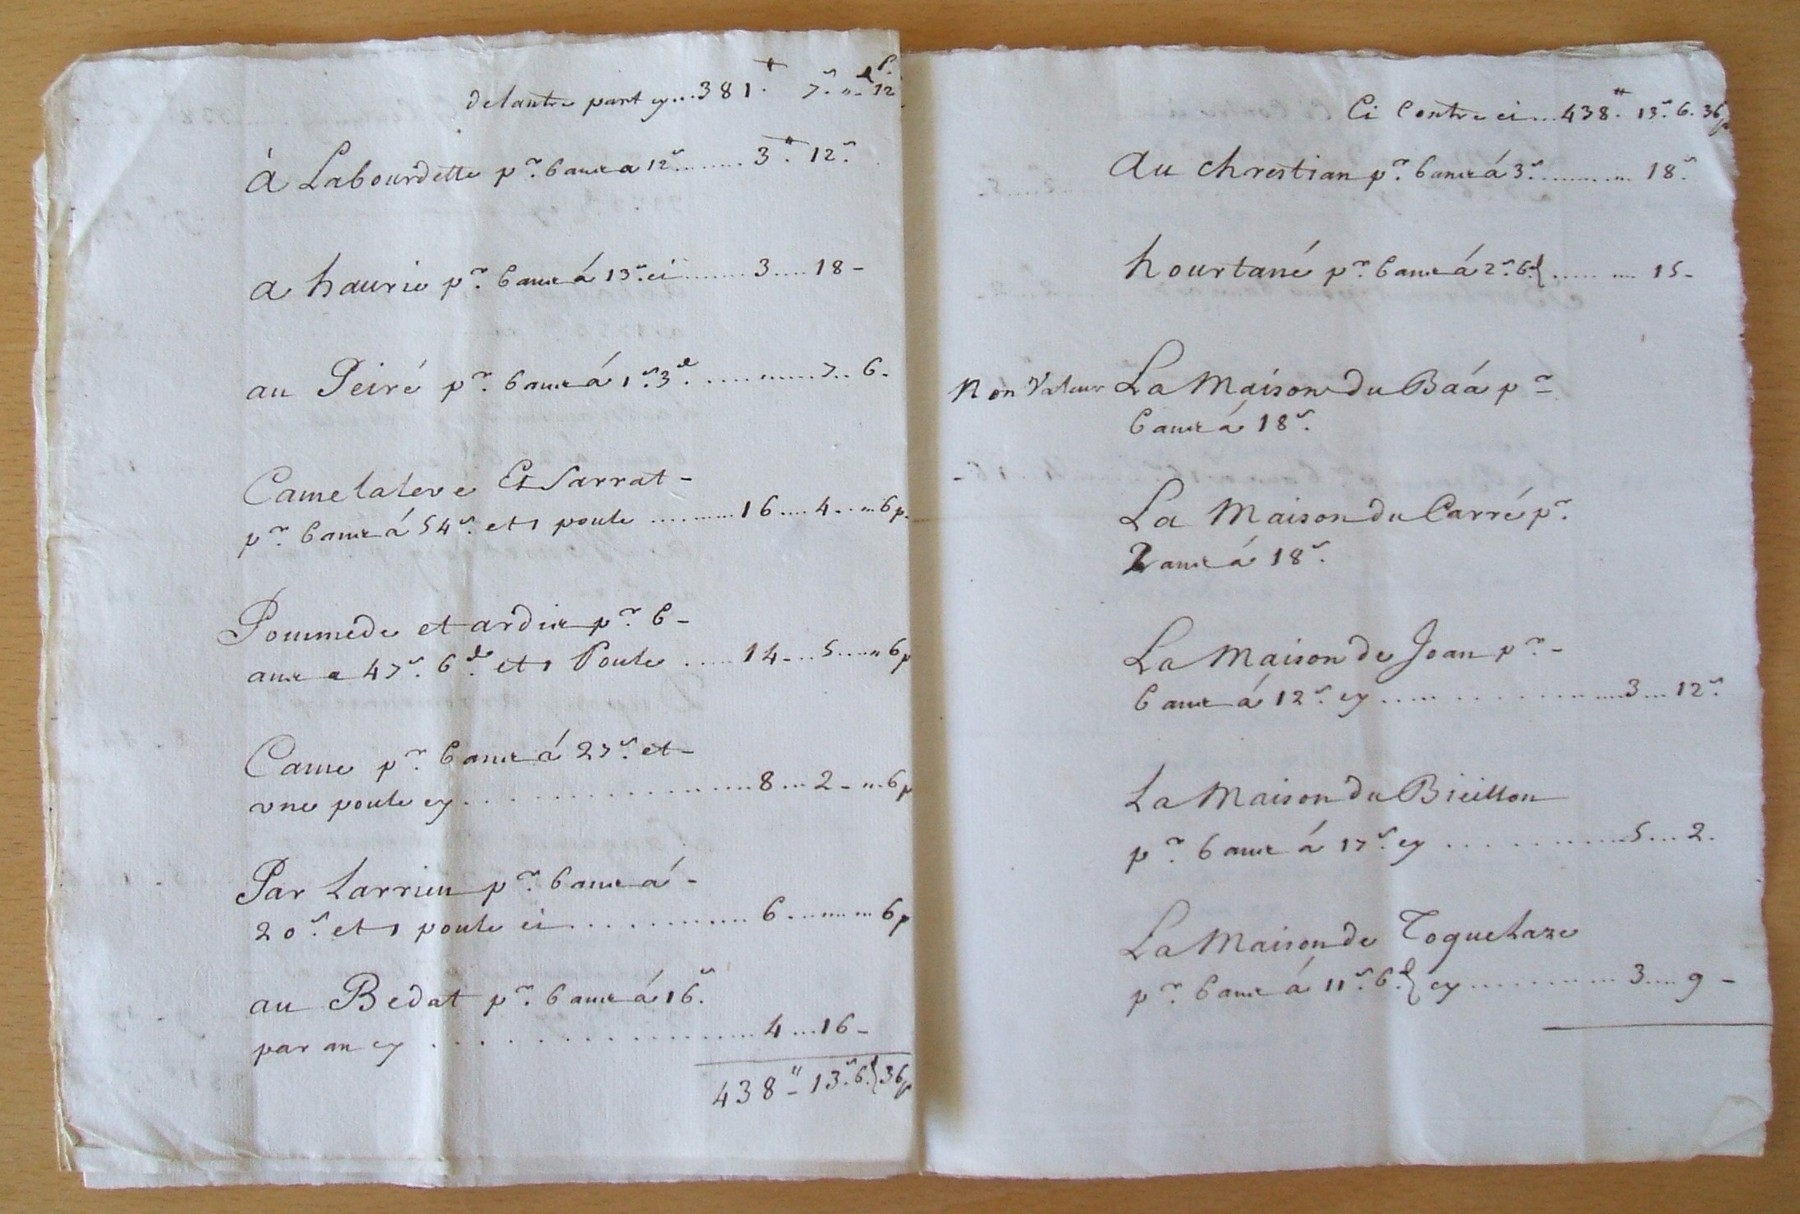 de lautre part cy... 381.# 7.s „. d 12 P.
à Labourdette pr. 6 ans a 12s........ 3.# 12.s
a haurie pr. 6 ans á 13.s ci....... 3.... 18 -
au Peiré pr. 6 ans á 1.s 3.d .............7.. 6.
Camelaleve Et Sarrat -
pr. 6 ans á 54.s et 1 poule .........16....4....6p.
Poumede et ardin pr. 6 -
ans a 47.s 6.d et 1 Poule .....14....5....„6p
Came pr. 6 ans á 27.s et -
vne poule cy...................8...2-„.6p
Par Larrieu pr. 6 ans á -
20.s et 1 poule ci............6........6p
au Bedat pr. 6 ans á 16.s
par an cy ..................4...16-
438# - 13.s 6.d 36p
Ci Contre ci...438.# 13.s 6. 36p
Au chrestian pr. 6 ans á 3.s........... 18.s
hourtané pr. 6 ans á 2.s 6.d .......... 15-
Non Valeur La Maison du Baá pr
6 ans á 18.s
La Maison du Carré pr.
2 ans á 18.s
La Maison de Joan pr. -
6 ans á 12.s cy ................3...12.s
La Maison du Bieillon
pr. 6 ans á 17.s cy ............5...2.
La Maison de Toguehaze
pr. 6 ans á 11.s 6.d cy............3....9 -